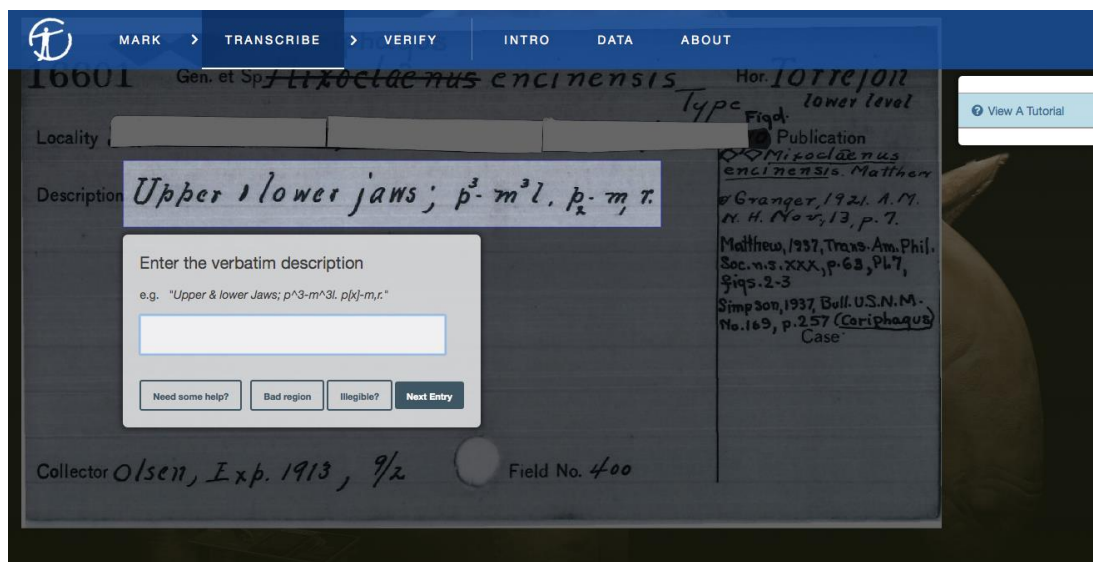 MARK > TRANSCRIBE > VERIFY INTRO DATA ABOUT
View A Tutorial
16601 Gen. et Sp. Mixoclaenus encinensis Hor. Torrejon
lower level
Type
Figd.
Locality
Publication
Mixoclaenus
encinensis. Matthew
& Granger, 1921. A.M.
N. H. Nov, 13, p. 7.
Matthew, 1937, Trans. Am. Phil.
Soc. n.s. XXX, p. 63, Pl. 7,
figs. 2-3
Simpson, 1937, Bull. U.S.N.M.
No. 169, p. 257 (Coriphagus)
Case
Description Upper & lower jaws; p³- m³ l. p₂- m₁ r.
Enter the verbatim description
e.g. "Upper & lower Jaws; p^3-m^3l. p[x]-m,r."
Need some help? Bad region Illegible? Next Entry
Collector Olsen, Exp. 1913, 9/2 Field No. 400